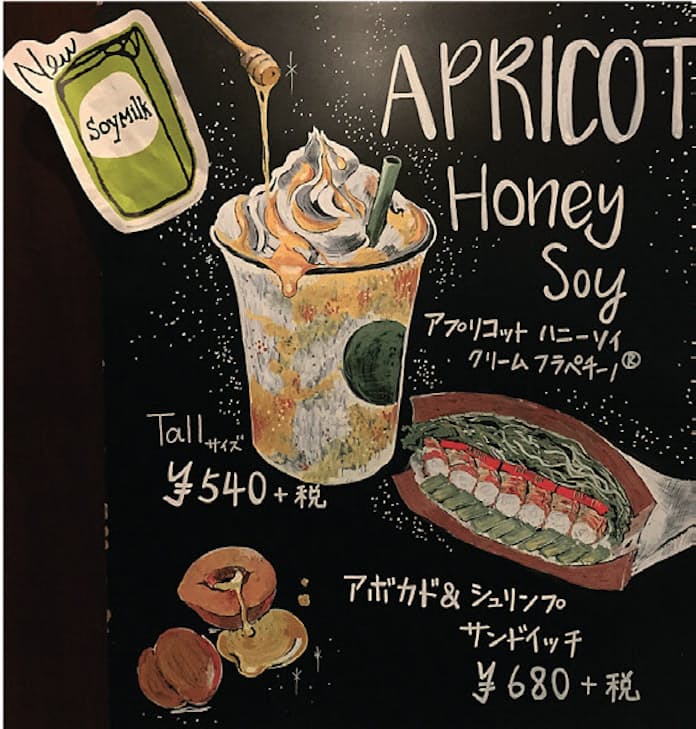 New
Soy Milk
APRICOT
Honey
Soy
アプリコット ハニーソイ
クリーム フラペチーノ®
Tallサイズ
¥540+税
アボカド& シュリンプ
サンドイッチ
¥680+税